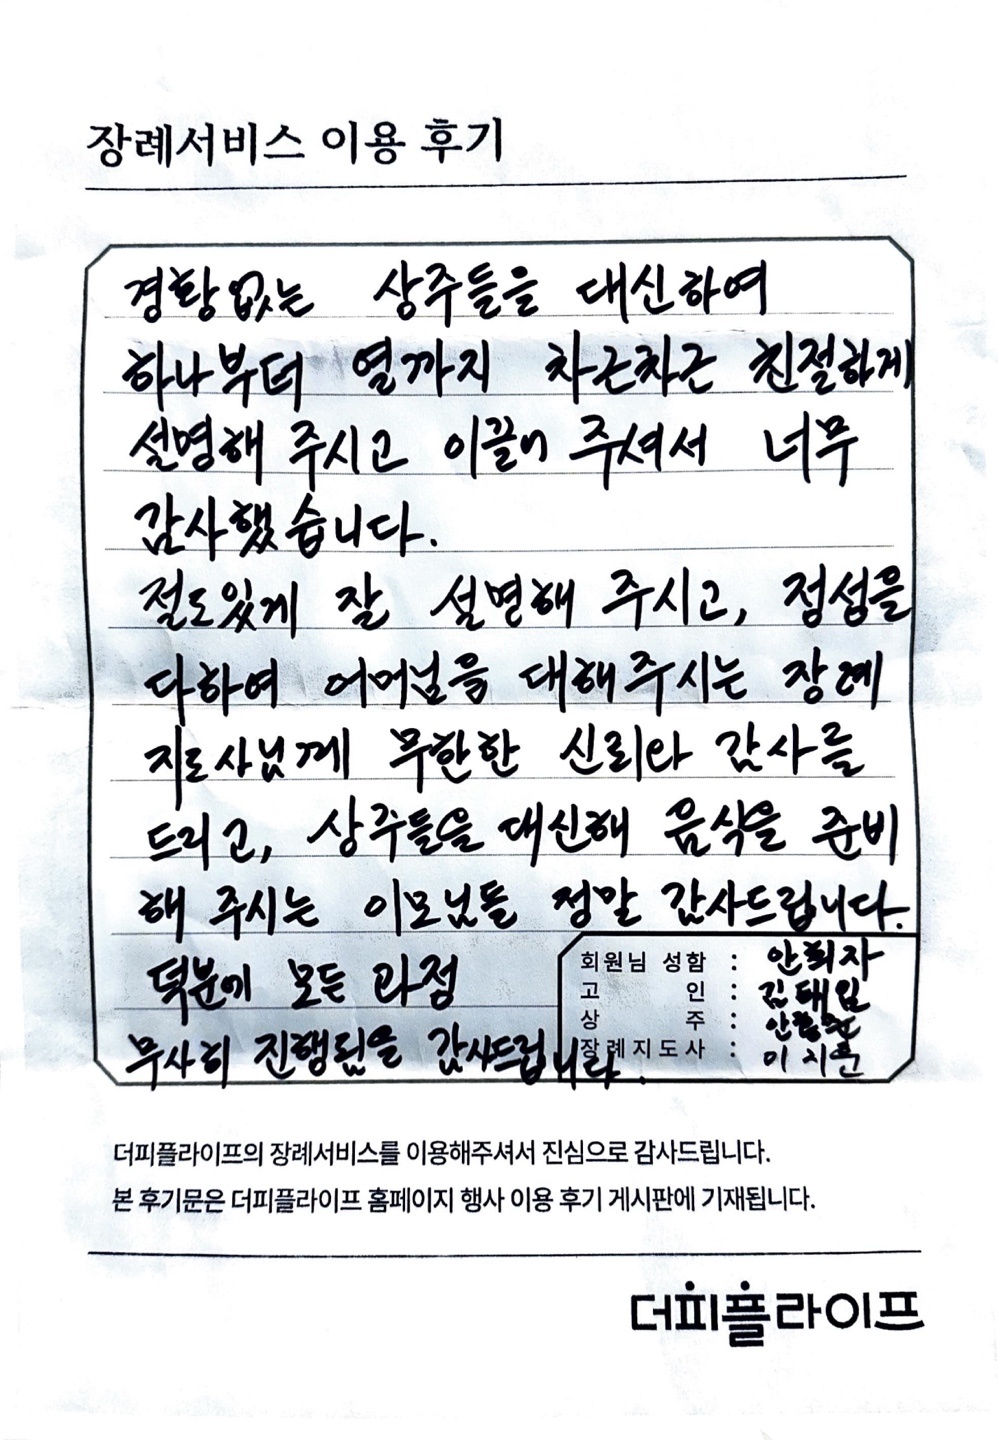 장례서비스 이용 후기
경황없는 상주들을 대신하여
하나부터 열까지 차근차근 친절하게
설명해 주시고 이끌어 주셔서 너무
감사했습니다.
절도있게 잘 설명해 주시고, 정성을
다하여 어머님을 대해주시는 장례
지도사님께 무한한 신뢰와 감사를
드리고, 상주들을 대신해 음식을 준비
해 주시는 이모님들 정말 감사드립니다.
덕분에 모든 과정
무사히 진행됨을 감사드립니다.
회원님 성함 : 안희자
고 인 : 김태임
상 주 :
장례지도사 :
더피플라이프의 장례서비스를 이용해주셔서 진심으로 감사드립니다.
본 후기문은 더피플라이프 홈페이지 행사 이용 후기 게시판에 기재됩니다.
더피플라이프